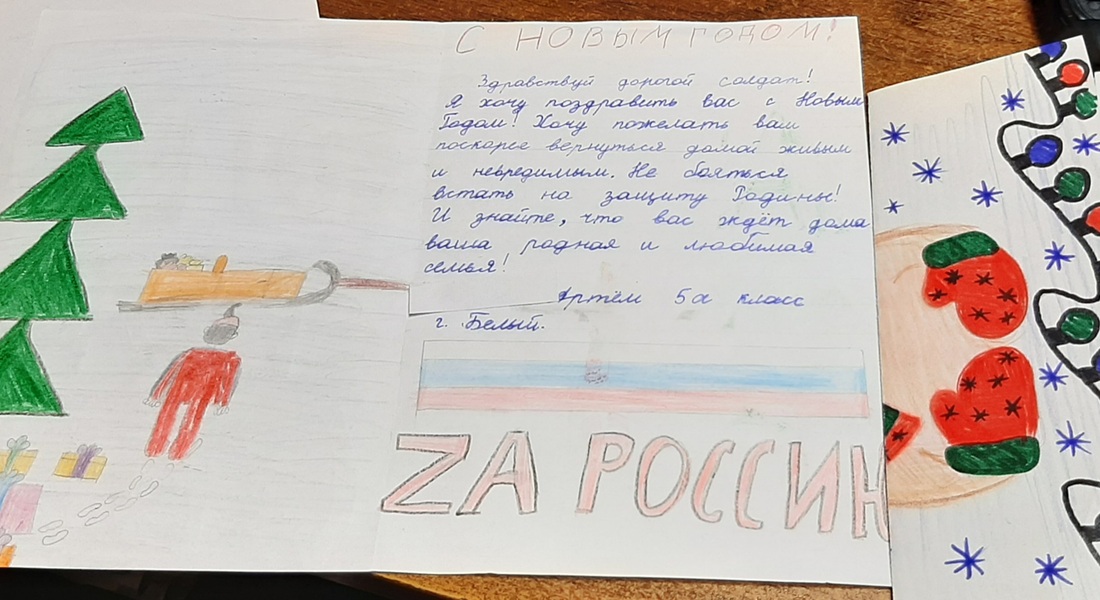 С НОВЫМ ГОДОМ!
Здравствуй дорогой солдат!
Я хочу поздравить вас с Новым
Годом! Хочу пожелать вам
поскорее вернуться домой живым
и невредимым. Не бояться
встать на защиту Родины!
И знайте, что вас ждёт дома
ваша родная и любимая
семья!
Артём 5а класс
г. Белый.
ZА РОССИЮ